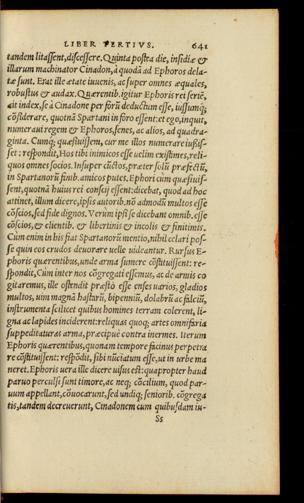 LIBER TERTIVS. 641
tandem litassent, discessere. Quinta postra die, insidiæ &
illarum machinator Cinadon, à quodã ad Ephoros dela-
tæ sunt. Erat ille ætate iuuenis, ac super omnes æquales,
robustus & audax. Quærentib. igitur Ephoris rei seriē,
ait index, se à Cinadone per forū deductum esse, iussumq́;
cōsiderare, quotnã Spartani in foro essent: et ego, inquit,
numeraui regem & Ephoros, senes, ac alios, ad quadra-
ginta. Cumq́; quæsiuissem, cur me illos numerare iussis-
set: respondit, Hos tibi inimicos esse uelim existimes, reli-
quos omnes socios. Insuper cūctos, præter solū præfectū,
in Spartanorū finib. amicos putes. Ephori cum quæsiuis-
sent, quotnã huius rei conscij essent: dicebat, quod ad hoc
attinet, illum dicere, ipsis autorib. nō admodū multos esse
cōscios, sed fide dignos. Verùm ipsi se dicebant omnib. esse
cōscios, & clientib. & libertinis & incolis & finitimis.
Cùm enim in his fiat Spartanorū mentio, nihil celari pos-
se quin eos crudos deuorare uelle uideantur. Rursus E-
phoris quærentibus, unde arma sumere cōstituissent: re-
spondit, Cùm inter nos cōgregati essemus, ac de armis co
gitaremus, ille ostendit præstò esse enses uarios, gladios
multos, uim magnã hastarū, bipenniū, dolabrū ac falciū,
instrumenta scilicet quibus homines terram colerent, li-
gna ac lapides inciderent: reliquas quoq́; artes omnifaria
suppeditaturas arma, præcipuè contra inermes. Iterum
Ephoris quærentibus, quonam tempore facinus perpetra
re cōstituissent: respōdit, sibi nūciatum esse, ut in urbe ma
neret. Ephoris uera ille dicere uisus est: quapropter haud
paruo perculsi sunt timore, ac neq; cōcilium, quod par-
uum appellant, cōuocarunt, sed undiq; seniorib. cōgrega
tis, tandem decreuerunt, Cinadonem cum quibusdam iu-
Ss